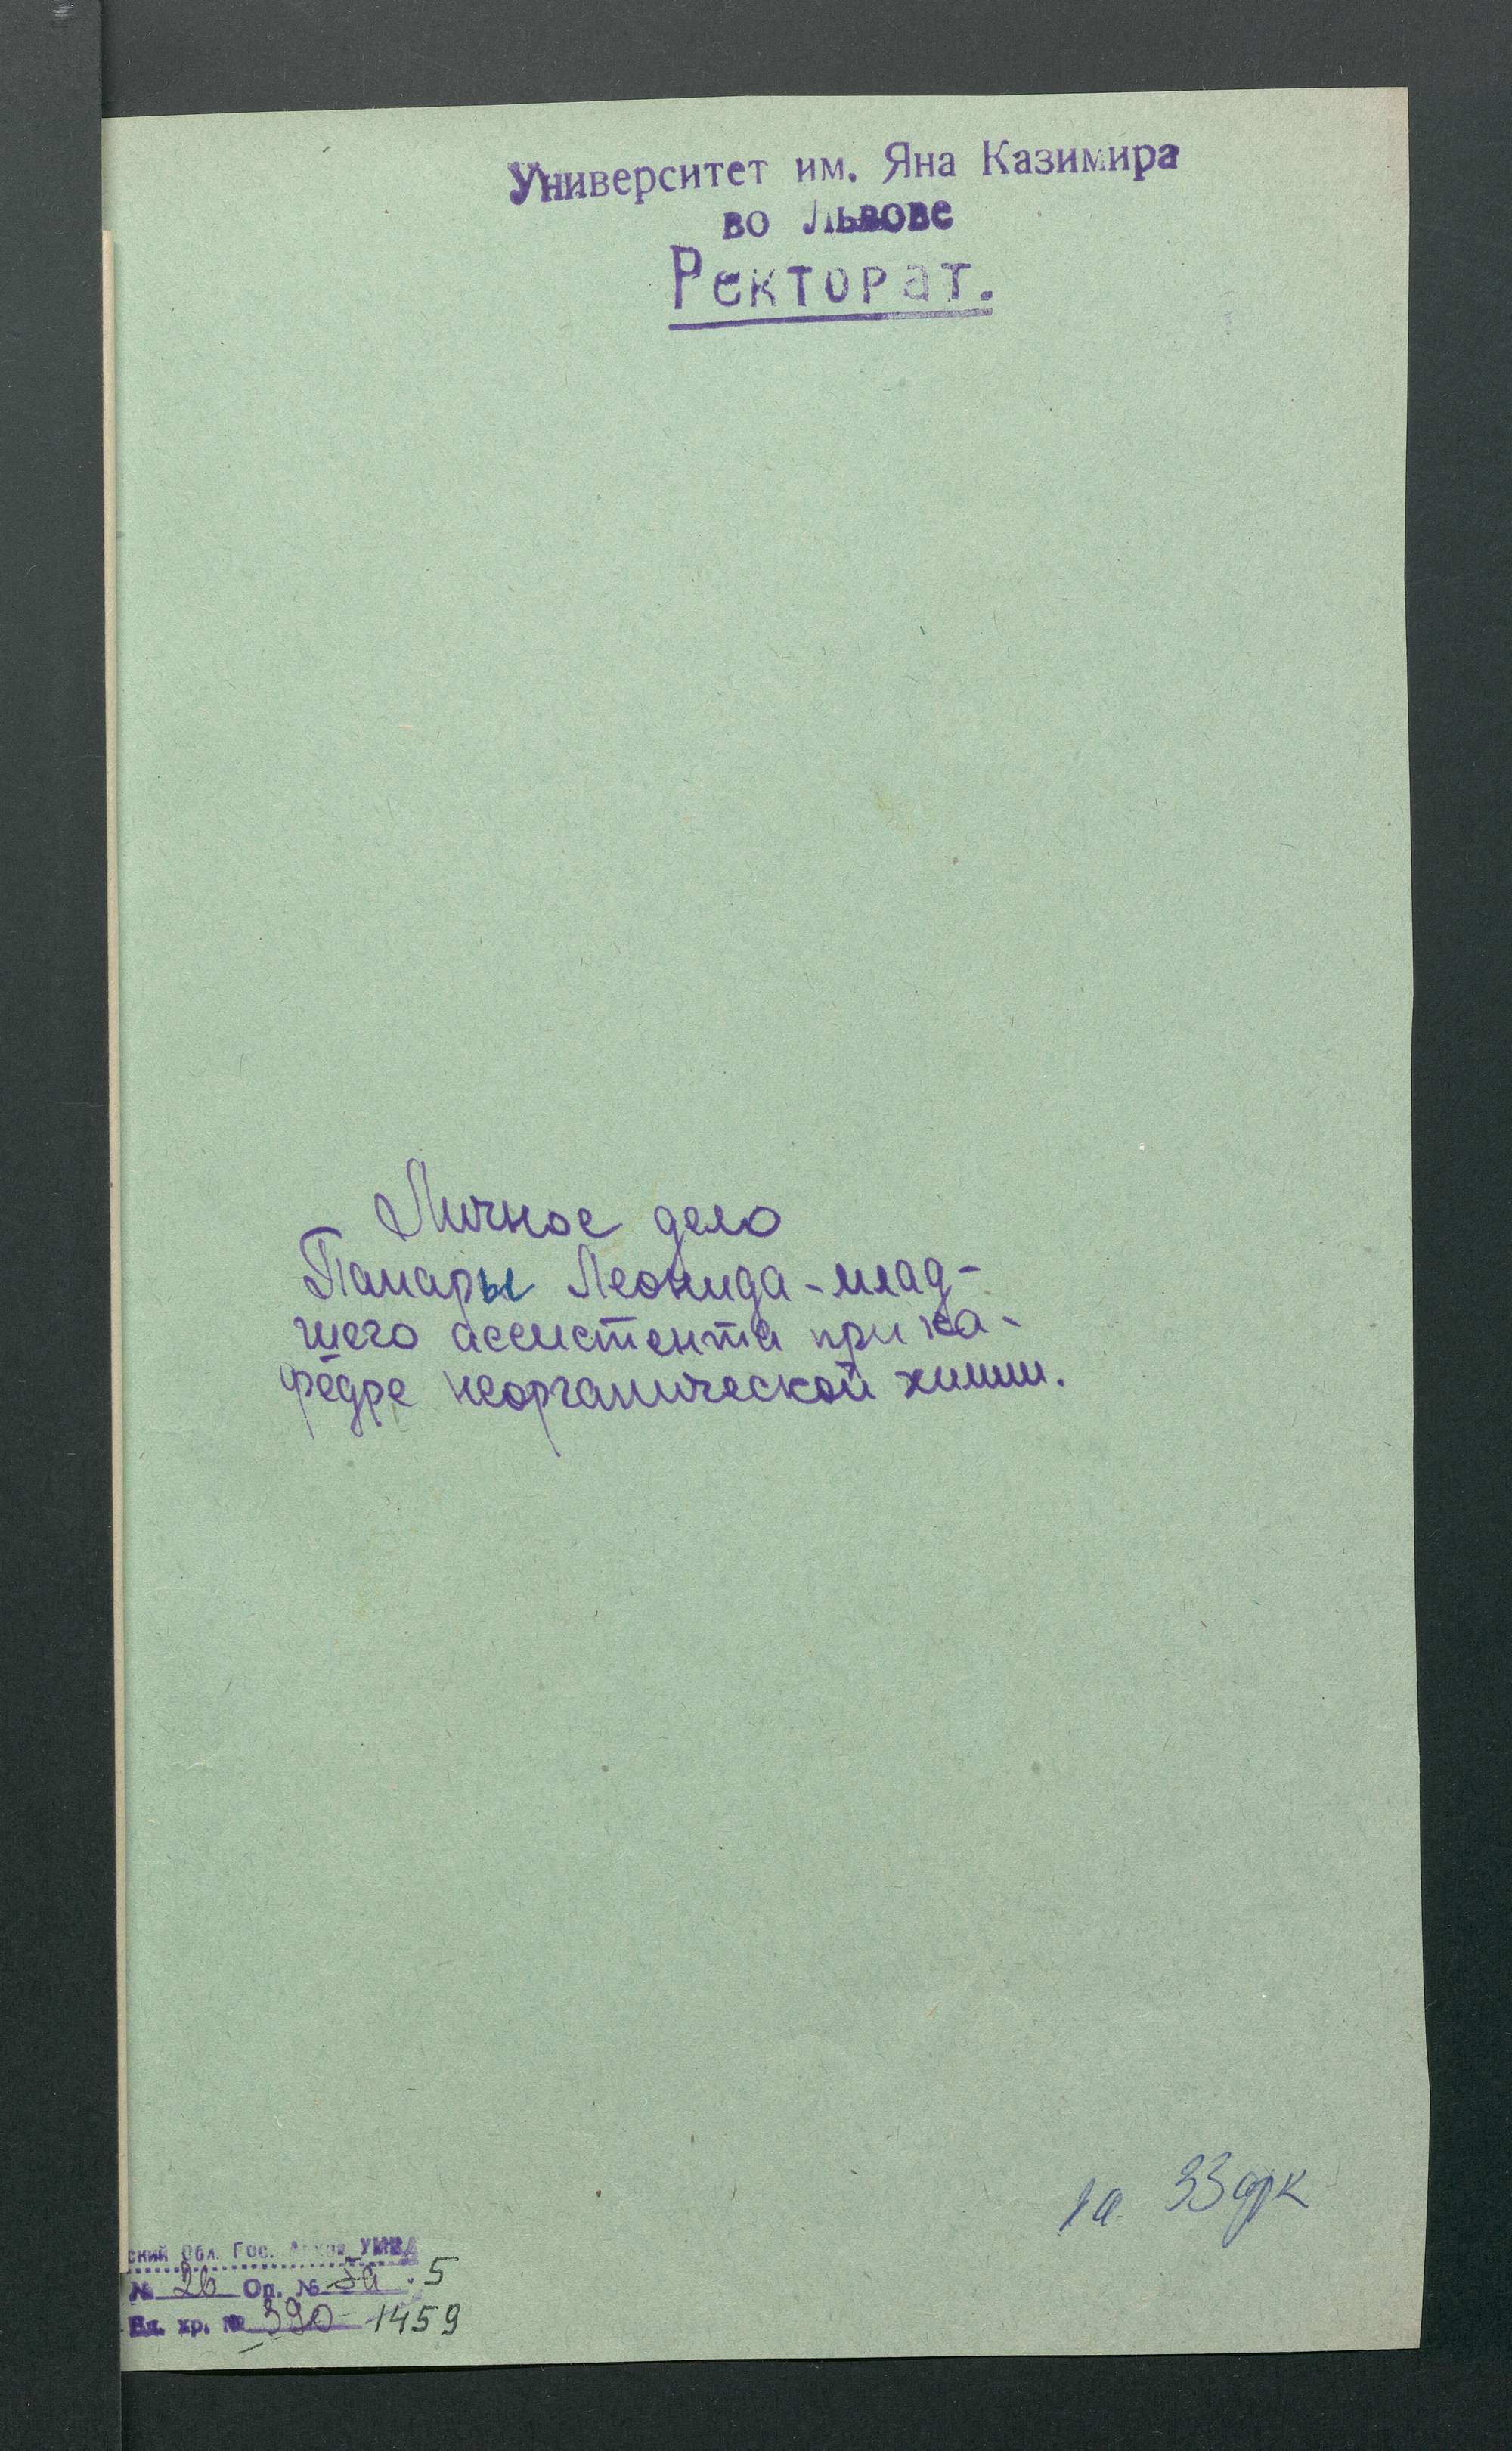 Университет им. Яна Казимира
во Львове
Ректорат.
Личное дело
Панары Леонида - млад-
шего ассистента при ка-
федре неорганической химии.
1а. 33 арк
ский Обл. Гос. Архив УМВД
№ 26 Оп. № 5а . 5
Ед. хр. № 390 1459